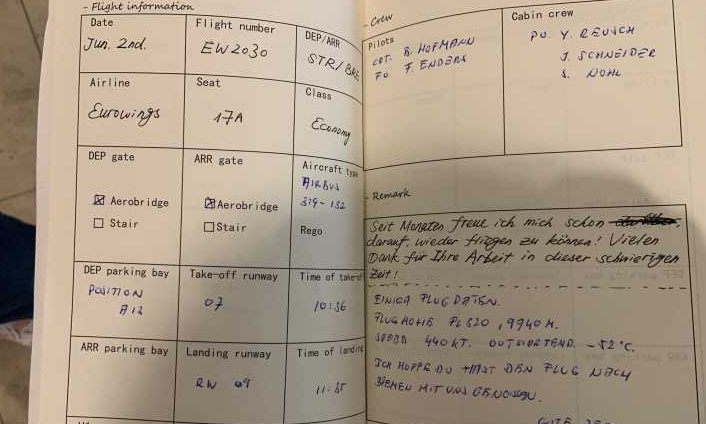 - Flight information
Date
Jun. 2nd.
Flight number
EW2030
DEP/ARR
STR/BRE
Airline
Eurowings
Seat
17A
Class
Economy
DEP gate
☒ Aerobridge
☐ Stair
ARR gate
☒ Aerobridge
☐ Stair
Aircraft type
AIRBUS
319-132
Rego
DEP parking bay
POSITION
A12
Take-off runway
07
Time of take-off
10:36
ARR parking bay
Landing runway
RW 09
Time of landing
11:35
- Crew
Pilots
CPT. B. HOFMANN
FO. F. ENDERS
Cabin crew
PU. Y. REUSCH
J. SCHNEIDER
S. NOHL
- Remark
Seit Monaten freue ich mich schon
darauf, wieder fliegen zu können! Vielen
Dank für Ihre Arbeit in dieser schwierigen
Zeit!
EINIGE FLUGDATEN.
FLUGHÖHE FL320, 9740 M.
SPEED 440KT. OUTSIDETEMP. -52°C.
ICH HOFFE DU HAST DEN FLUG NACH
BREMEN MIT UNS GENOSSEN.